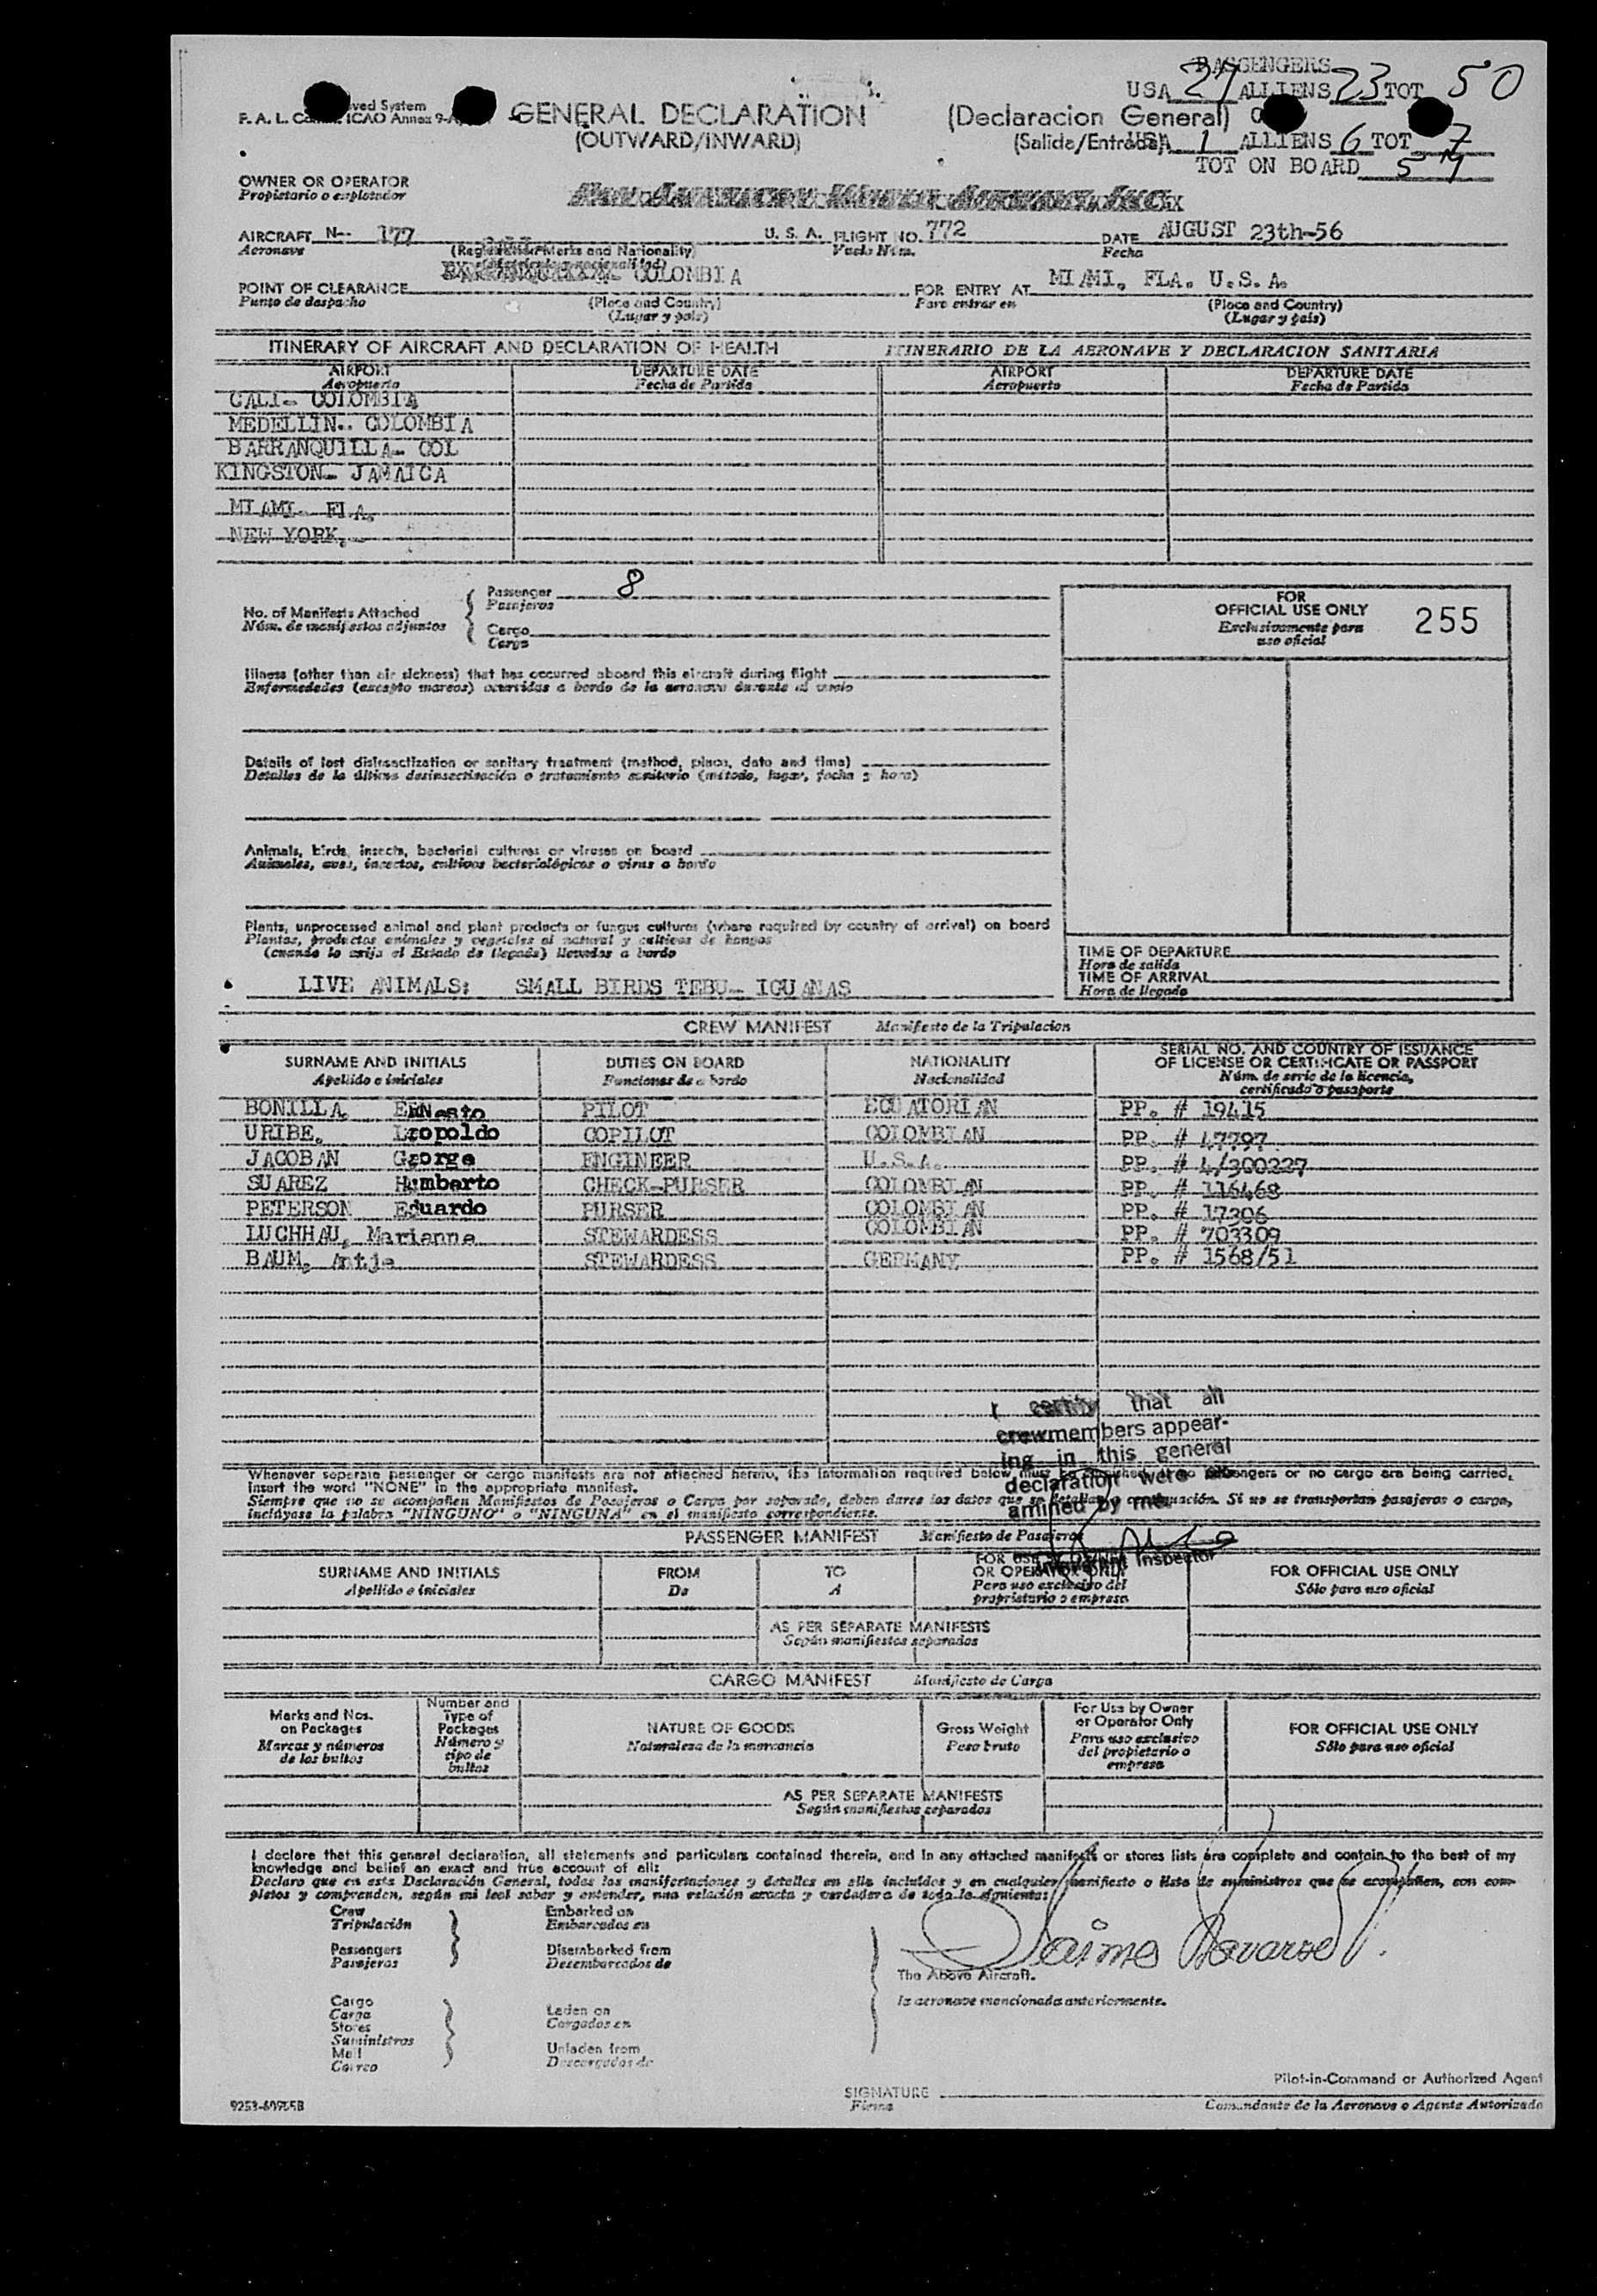 PASSENGERS
USA 27 ALLIENS 23 TOT 50
F. A. L. ICAO Annex 9-A
GENERAL DECLARATION (Declaracion General)
(OUTWARD/INWARD) (Salida/Entrada) USA 1 ALLIENS 6 TOT 7
TOT ON BOARD 57
OWNER OR OPERATOR
Propietario o explotador
AIRCRAFT N-- 177 U. S. A. FLIGHT NO. 772 DATE AUGUST 23th-56
Aeronave (Registration Marks and Nationality) Vuelo Núm. Fecha
COLOMBIA MIAMI, FLA. U.S.A.
POINT OF CLEARANCE FOR ENTRY AT
Punto de despacho (Place and Country) Para entrar en (Place and Country)
(Lugar y país) (Lugar y país)
ITINERARY OF AIRCRAFT AND DECLARATION OF HEALTH ITINERARIO DE LA AERONAVE Y DECLARACION SANITARIA
AIRPORT DEPARTURE DATE AIRPORT DEPARTURE DATE
Aeropuerto Fecha de Partida Aeropuerto Fecha de Partida
CALI- COLOMBIA
MEDELLIN.. COLOMBIA
BARRANQUILLA- COL
KINGSTON- JAMAICA
MIAMI- FLA.
NEW YORK.
Passenger 8
Pasajeros
No. of Manifests Attached
Núm. de manifiestos adjuntos
Cargo
Carga
FOR
OFFICIAL USE ONLY 255
Exclusivamente para
uso oficial
Illness (other than air sickness) that has occurred aboard this aircraft during flight
Enfermedades (excepto mareos) ocurridas a bordo de la aeronave durante el vuelo
Details of last disinsectization or sanitary treatment (method, place, date and time)
Detalles de la última desinsectización o tratamiento sanitario (método, lugar, fecha y hora)
Animals, birds, insects, bacterial cultures or viruses on board
Animales, aves, insectos, cultivos bacteriológicos o virus a bordo
Plants, unprocessed animal and plant products or fungus cultures (where required by country of arrival) on board
Plantas, productos animales y vegetales al natural y cultivos de hongos
(cuando lo exija el Estado de llegada) llevados a bordo
LIVE ANIMALS: SMALL BIRDS TEBU- IGUANAS
TIME OF DEPARTURE
Hora de salida
TIME OF ARRIVAL
Hora de llegada
CREW MANIFEST Manifiesto de la Tripulacion
SURNAME AND INITIALS DUTIES ON BOARD NATIONALITY SERIAL NO. AND COUNTRY OF ISSUANCE
OF LICENSE OR CERTIFICATE OR PASSPORT
Apellido e iniciales Funciones de a bordo Nacionalidad Núm. de serie de la licencia,
certificado o pasaporte
BONILLA, ERNesto PILOT ECUATORIAN PP. # 19415
URIBE, Leopoldo COPILOT COLOMBIAN PP. # 47797
JACOBAN George ENGINEER U.S.A. PP. # 4/300227
SUAREZ Humberto CHECK-PURSER COLOMBIAN PP. # 116468
PETERSON Eduardo PURSER COLOMBIAN PP. # 17306
LUCHHAU, Marianne STEWARDESS COLOMBIAN PP. # 703309
BAUM, Antje STEWARDESS GERMANY PP. # 1568/51
I certify that all
crewmembers appear-
ing in this general
declaration were ex-
amined by me.
Immigrant Inspector
Whenever separate passenger or cargo manifests are not attached hereto, the information required below must be furnished. If no passengers or no cargo are being carried,
insert the word "NONE" in the appropriate manifest.
Siempre que no se acompañen Manifiestos de Pasajeros o Carga por separado, deben darse los datos que se detallan a continuación. Si no se transportan pasajeros o carga,
inclúyase la palabra "NINGUNO" o "NINGUNA" en el manifiesto correspondiente.
PASSENGER MANIFEST Manifiesto de Pasajeros
SURNAME AND INITIALS FROM TO FOR USE BY OWNER
OR OPERATOR ONLY FOR OFFICIAL USE ONLY
Apellido e iniciales De A Para uso exclusivo del
propietario o empresa Sólo para uso oficial
AS PER SEPARATE MANIFESTS
Según manifiestos separados
CARGO MANIFEST Manifiesto de Carga
Marks and Nos.
on Packages
Marcas y números
de los bultos
Number and
Type of
Packages
Número y
tipo de
bultos
NATURE OF GOODS
Naturaleza de la mercancía
Gross Weight
Peso bruto
For Use by Owner
or Operator Only
Para uso exclusivo
del propietario o
empresa
FOR OFFICIAL USE ONLY
Sólo para uso oficial
AS PER SEPARATE MANIFESTS
Según manifiestos separados
I declare that this general declaration, all statements and particulars contained therein, and in any attached manifests or stores lists are complete and contain to the best of my
knowledge and belief an exact and true account of all:
Declaro que en esta Declaración General, todas las manifestaciones y detalles en ella incluidos y en cualquier manifiesto o lista de suministros que se acompañen, son com-
pletos y comprenden, según mi leal saber y entender, una relación exacta y verdadera de todo lo siguiente:
Crew Embarked on
Tripulación Embarcados en
Passengers Disembarked from
Pasajeros Desembarcados de
Jaime Navarro
The Above Aircraft.
la aeronave mencionada anteriormente.
Cargo
Carga
Stores
Suministros
Mail
Correo
Laden on
Cargados en
Unladen from
Descargados de
Pilot-in-Command or Authorized Agent
SIGNATURE
Firma Comandante de la Aeronave o Agente Autorizado